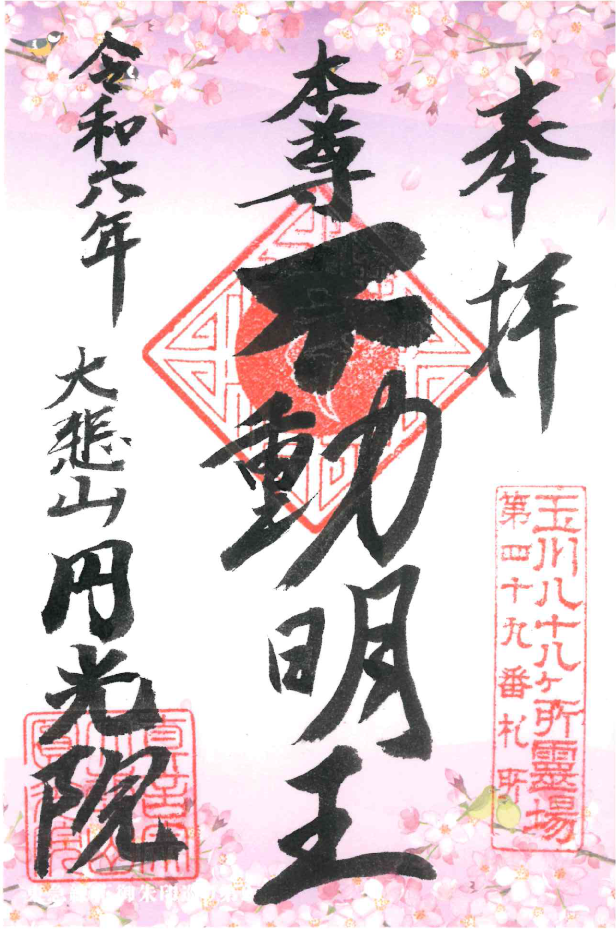 奉拝
玉川八十八ヶ所霊場
第四十九番札所
本尊 不動明王
令和六年
大悲山 円光院